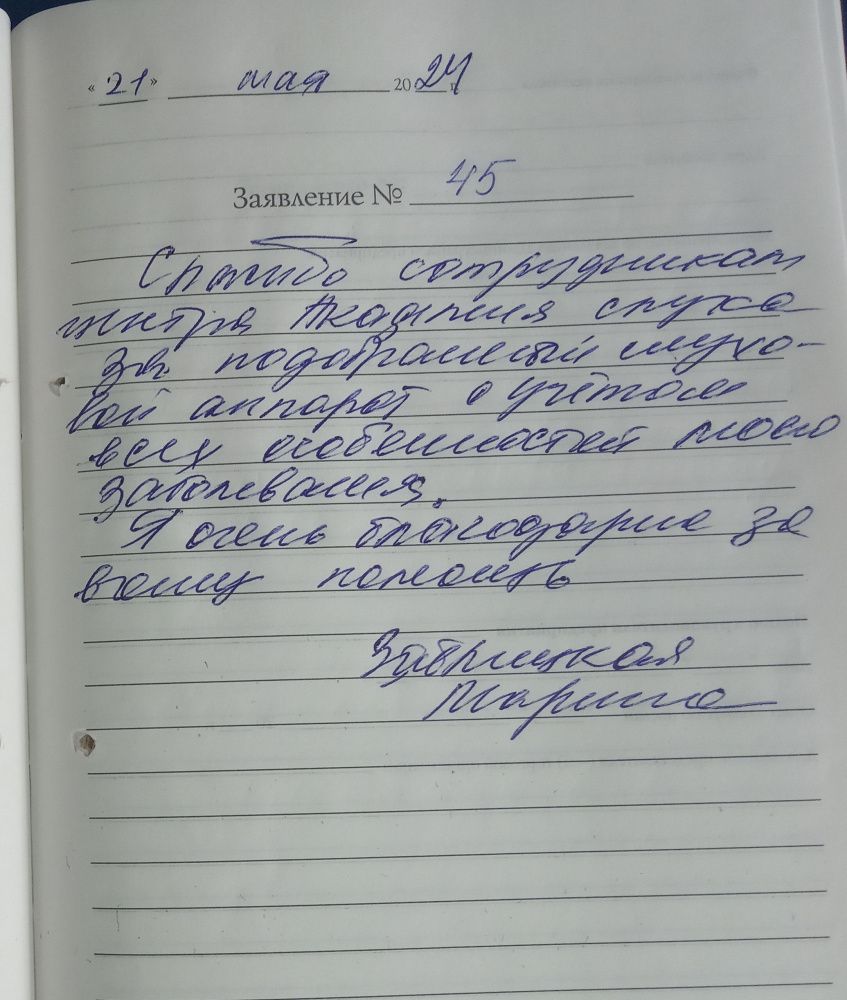 « 21 » мая 2024 г.
Заявление № 45
Спасибо сотрудникам
центра Академия слуха
за подобранный слухо-
вой аппарат с учётом
всех особенностей моего
заболевания.
Я очень благодарна за
вашу помощь
Марина